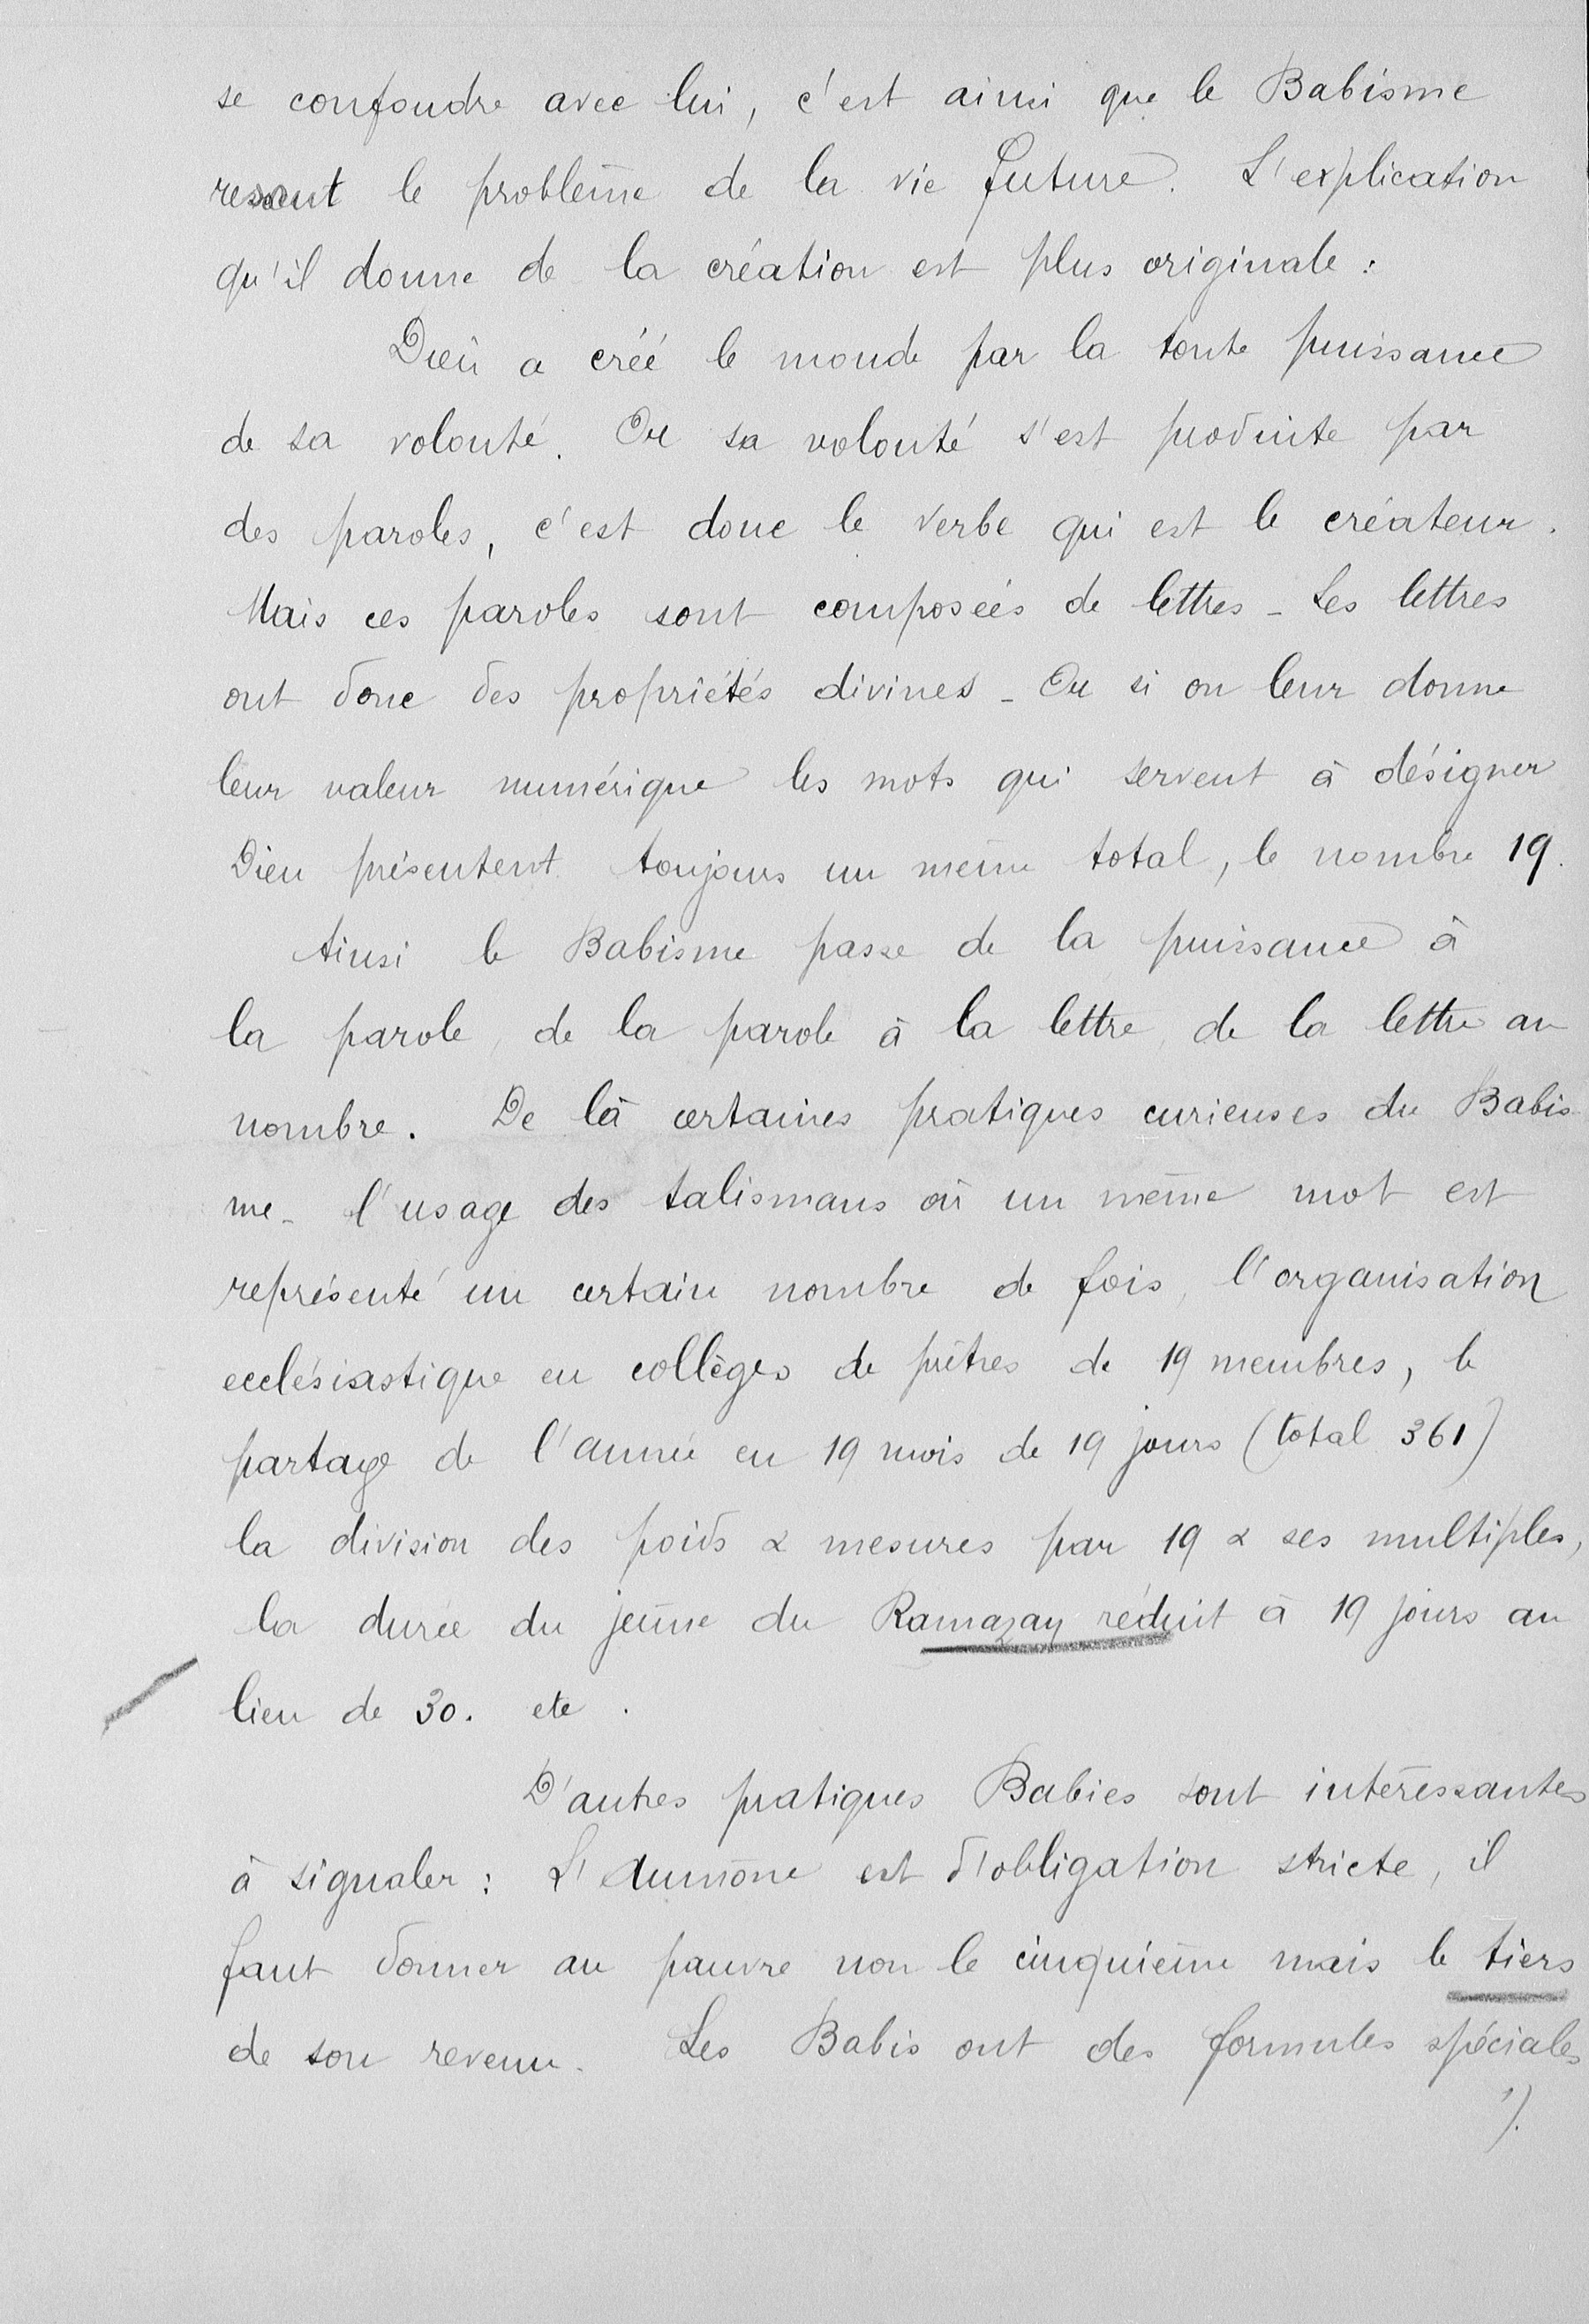 se confondre avec lui, c'est ainsi que le Babisme
resout le problème de la vie future. L'explication
qu'il donne de la création est plus originale :
Dieu a créé le monde par la toute puissance
de sa volonté. Or sa volonté s'est produite par
des paroles, c'est donc le verbe qui est le créateur.
Mais ces paroles sont composées de lettres - Les lettres
ont donc des propriétés divines - Or si on leur donne
leur valeur numérique les mots qui servent à désigner
Dieu présentent toujours un même total, le nombre 19.
Ainsi le Babisme passe de la puissance à
la parole, de la parole à la lettre, de la lettre au
nombre. De là certaines pratiques curieuses du Babis
me - l'usage des talismans où un même mot est
représenté un certain nombre de fois, l'organisation
ecclésiastique en collèges de prêtres de 19 membres, le
partage de l'année en 19 mois de 19 jours (total 361)
la division des poids & mesures par 19 & ses multiples,
la durée du jeûne du Ramazan réduit à 19 jours au
lieu de 30. etc.
D'autres pratiques Babies sont intéressantes
à signaler : L'Aumône est d'obligation stricte, il
faut donner au pauvre non le cinquième mais le tiers
de son revenu. Les Babis ont des formules spéciales
./.